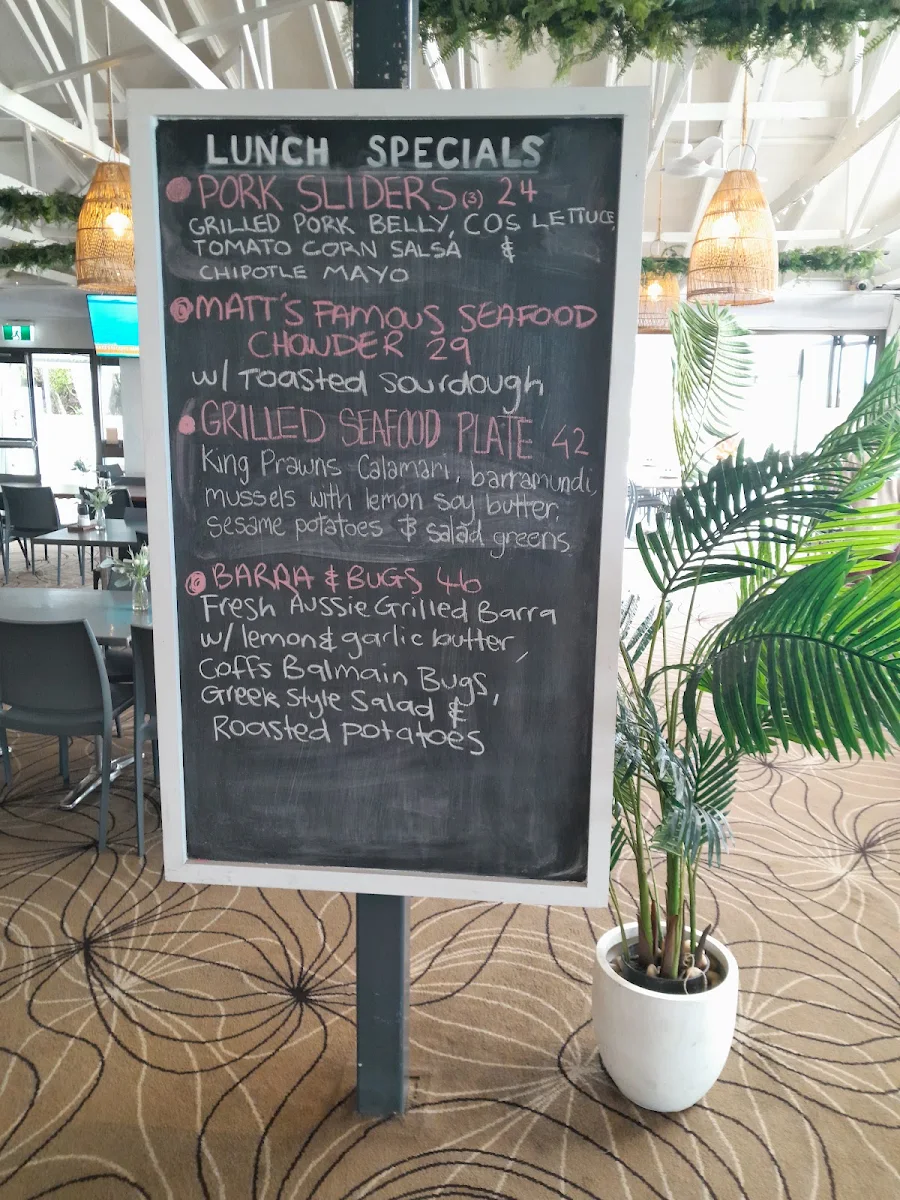 LUNCH SPECIALS
PORK SLIDERS (3) 24
GRILLED PORK BELLY, COS LETTUCE,
TOMATO CORN SALSA &
CHIPOTLE MAYO
MATT'S FAMOUS SEAFOOD
CHOWDER 29
w/ Toasted Sourdough
GRILLED SEAFOOD PLATE 42
King Prawns Calamari, barramundi,
mussels with lemon soy butter,
sesame potatoes & salad greens
BARRA & BUGS 46
Fresh Aussie Grilled Barra
w/ lemon & garlic butter,
Coffs Balmain Bugs,
Greek Style Salad &
Roasted potatoes